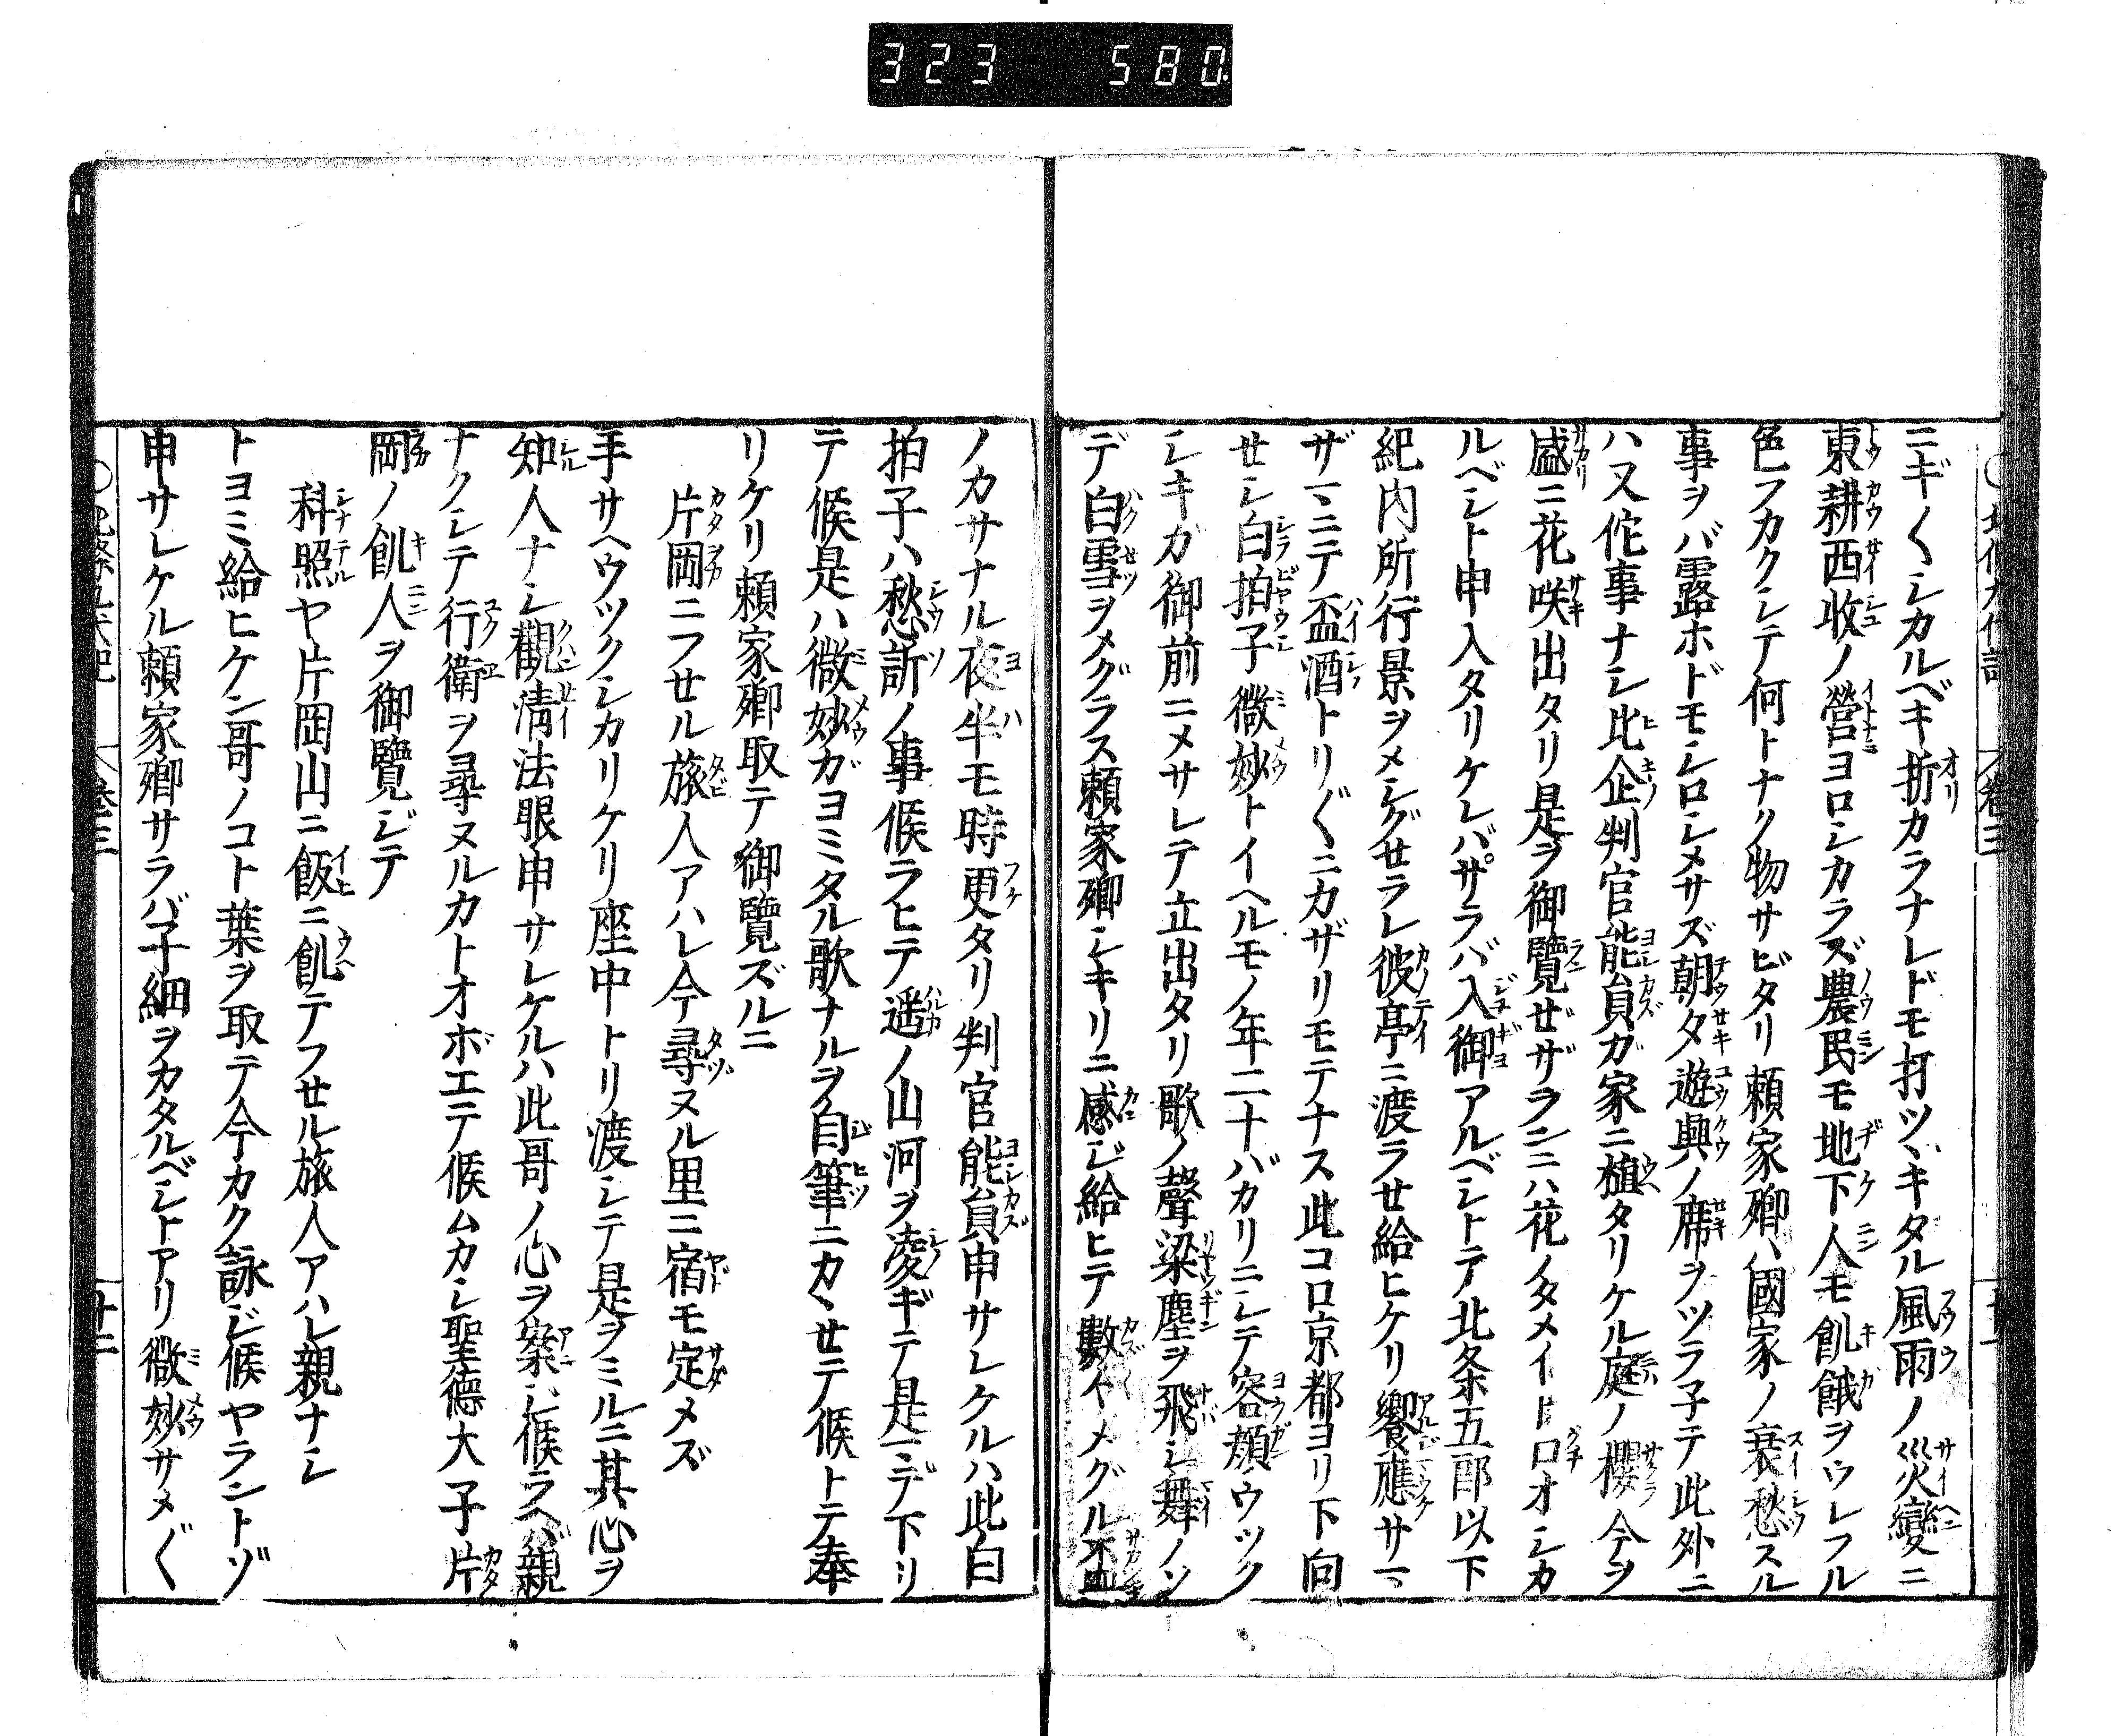 323 580
ニギ〱シカルベキ折カラナレドモ打ツヾキタル風雨ノ災變ニ
東耕西收ノ營ヨロシカラズ農民モ地下人モ飢餓ヲウレフル
色フカクシテ何トナク物サビタリ頼家卿ハ國家ノ衰愁スル
事ヲバ露ホドモシロシメサズ朝夕遊興ノ席ヲツラ子テ此外ニ
ハ又佗事ナシ比企判官能員ガ家ニ植タリケル庭ノ櫻今ヲ
盛ニ花咲出タリ是ヲ御覽ゼザランニハ花ノタメイト口オシカ
ルベシト申入タリケレバサラバ入御アルベシトテ北条五郎以下
紀内所行景ヲメシグせラレ彼亭ニ渡ラせ給ヒケリ饗應サマ
ザマニテ盃酒トリ〲ニカザリモテナス此コロ京都ヨリ下向
せシ白拍子微妙トイヘルモノ年二十バカリニシテ容顔ウツク
シキガ御前ニメサレテ立出タリ歌ノ聲梁塵ヲ飛シ舞ノソ
デ白雪ヲメグラス頼家卿シキリニ感ジ給ヒテ數々メグル盃
ノカサナル夜半モ時更タリ判官能員申サレケルハ此白
拍子ハ愁訴ノ事候ラヒテ遥ノ山河ヲ凌ギテ是マデ下リ
テ候是ハ微妙ガヨミタル歌ナルヲ自筆ニカヽせテ候トテ奉
リケリ頼家卿取テ御覽ズルニ
片岡ニフせル旅人アハレ今尋ヌル里ニ宿モ定メズ
手サヘウツクシカリケリ座中トリ渡シテ是ヲミルニ其心ヲ
知人ナシ觀清法眼申サレケルハ此哥ノ心ヲ案ジ候ラヘバ親
ナクシテ行衛ヲ尋ヌルカトオボエテ候ムカシ聖德大子片
岡ノ飢人ヲ御覽ジテ
科照ヤ片岡山ニ飯ニ飢テフせル旅人アハレ親ナシ
トヨミ給ヒケン哥ノコト葉ヲ取テ今カク詠ジ候ヤラントゾ
申サレケル頼家卿サラバ子細ヲカタルベシトアリ微妙サメ〲